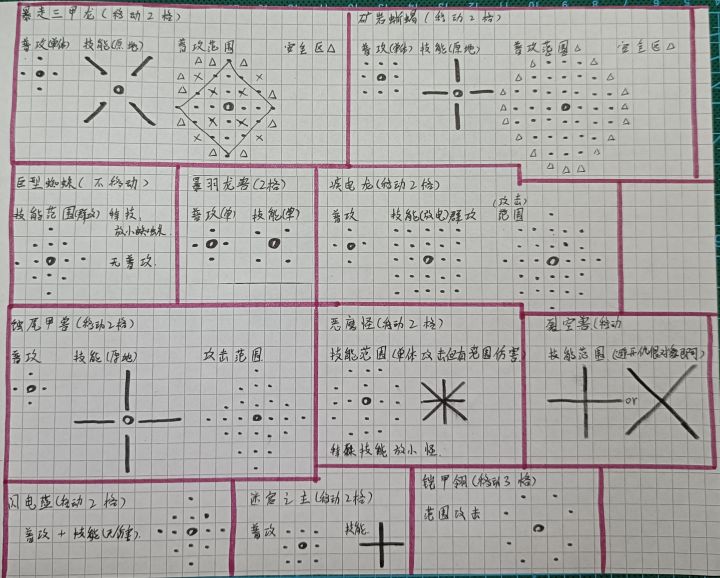 暴走三甲龙(移动2格)
普攻(单体) 技能(原地) 普攻范围 安全区△
矿岩蜥蜴(移动2格)
普攻(单体) 技能(原地) 普攻范围△ 安全区△
巨型蜘蛛(不移动)
技能范围(群攻) 特技,
放小蜘蛛
无普攻.
暴羽龙兽(2格)
普攻(单) 技能(单)
疾电龙(移动2格)
普攻 技能(放电)群攻
(攻击)
范围
蚀尾甲兽(移动2格)
普攻 技能(原地) 攻击范围
恶魔怪(移动2格)
技能范围(单体攻击但有范围伤害)
特殊技能放小怪.
空兽(移动
技能范围
or
闪电蓝(移动2格)
普攻+技能
迷宫之主(移动2格)
普攻 技能.
铠甲翎(移动3格)
范围攻击